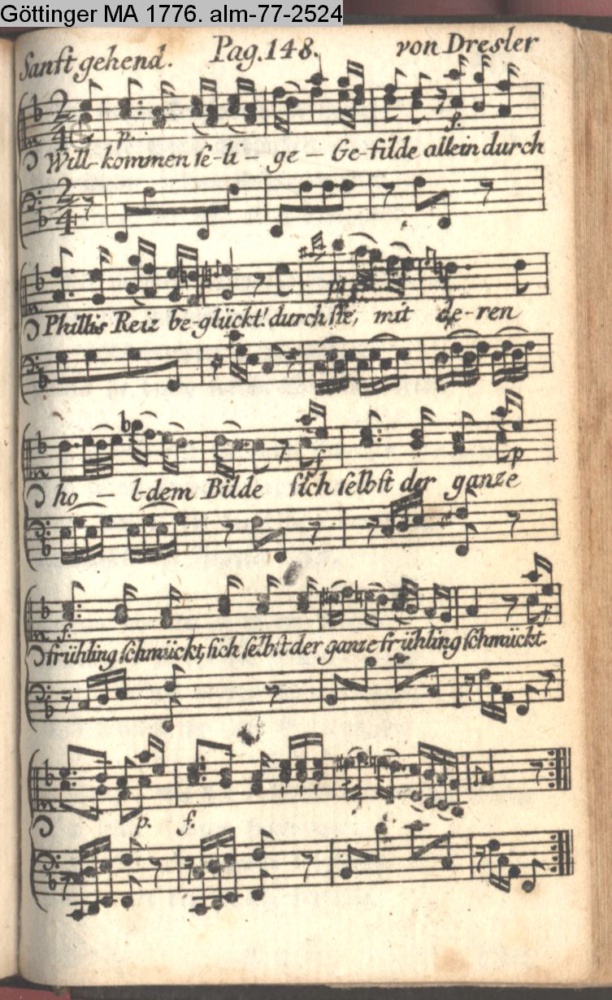 Göttinger MA 1776. alm-77-2524
Sanft gehend. Pag. 148. von Dresler
2 4
p. f.
Will-kommen se-li - ge - Ge-filde allein durch
2 4
Phillis Reiz be-glückt! durch sie, mit de-ren
f p
ho - l-dem Bilde sich selbst der ganze
f. f.
frühling schmückt, sich selbst der ganze frühling schmückt.
p. f.